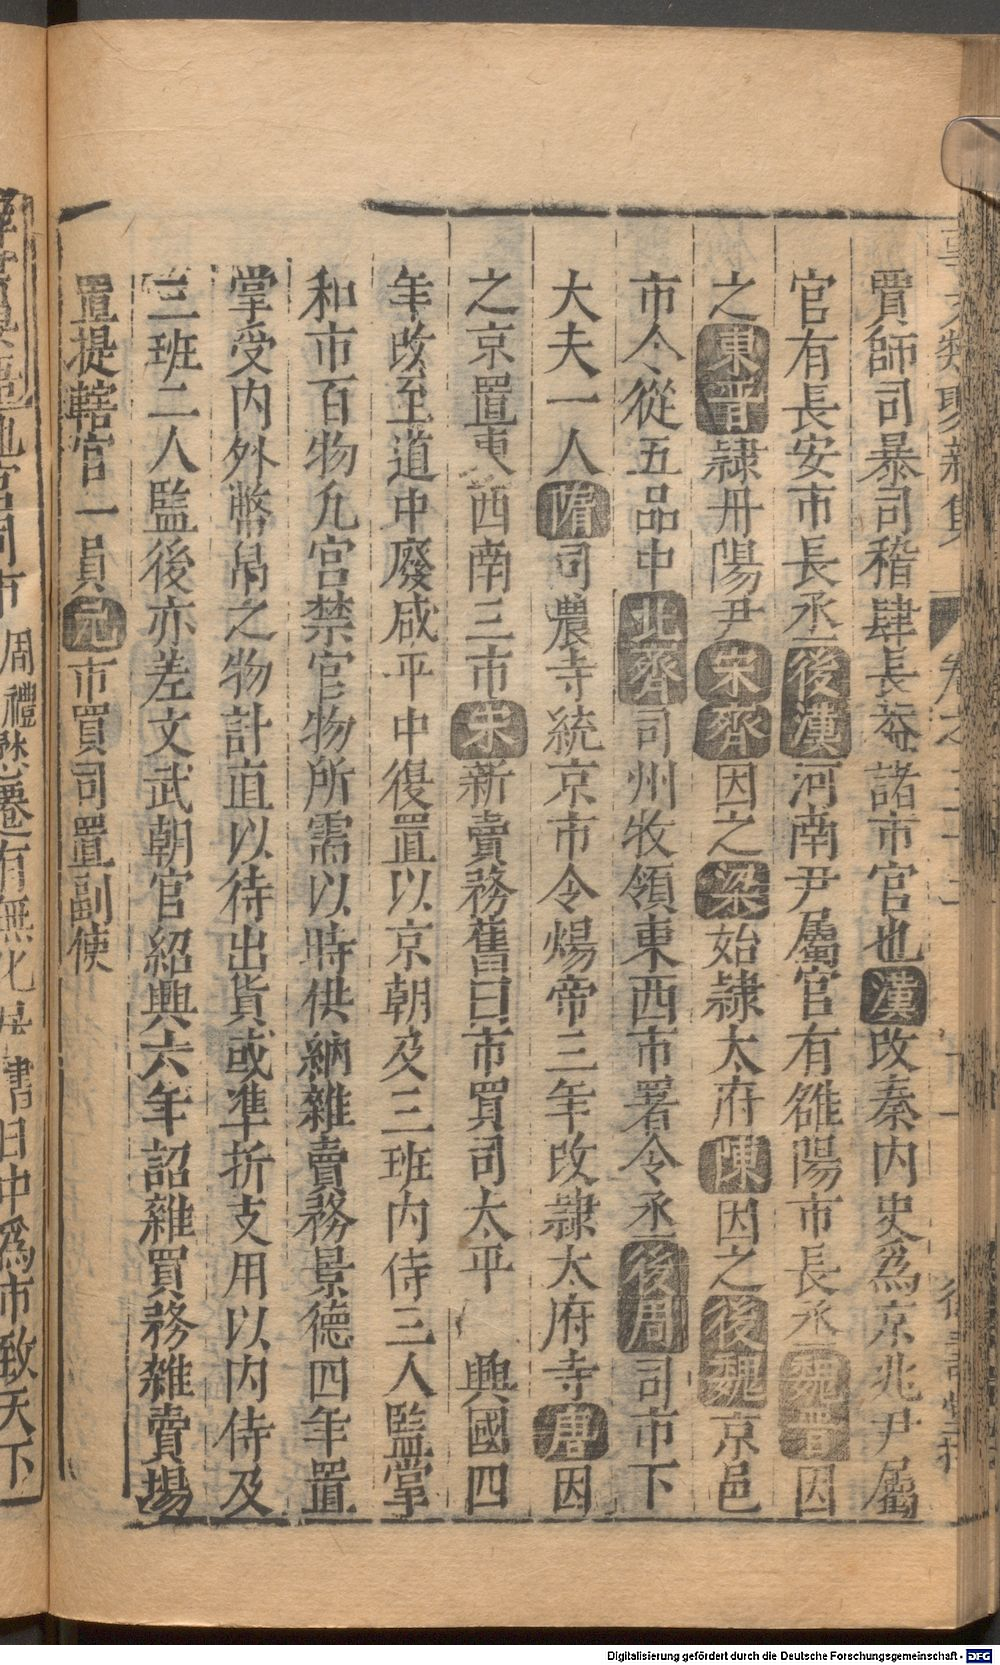 賈師司暴司稽肆長葢諸市官也漢改秦内史爲京兆尹屬
官有長安市長丞後漢河南尹屬官有雒陽市長丞魏晋因
之東晋隷丹陽尹宋齊因之梁始隷太府陳因之後魏京邑
市令從五品中北齊司州牧領東西市署令丞後周司市下
大夫一人隋司農寺統京市令煬帝三年改隷太府寺唐因
之京置東西南三市宋新賣務舊曰市買司太平興國四
年改至道中廢咸平中復置以京朝及三班内侍三人監掌
和市百物凢宫禁官物所需以時供納雜賣務景德四年置
掌受内外幣帛之物計直以待出貨或凖折支用以内侍及
三班二人監後亦差文武朝官紹興六年詔雜買務雜賣塲
置提轄官一員元市買司置副使
地官司市周禮懋遷有無化居書日中爲市致天下
Digitalisierung gefördert durch die Deutsche Forschungsgemeinschaft - DFG